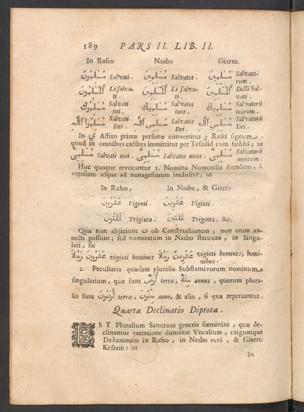 189 PARS II. LIB. II.
In Rafeo Nasbo Giarro.
مُسْلِمُونَ Salvati. مُسْلِمِينَ Salvatos. مُسْلِمِينَ Salvato-
rum.
Li salva-
ti. Dalli Sal-
vati.
Salvati
tui Salvatos
tuos Salvatorū
tuorum.
Salvati
Dei. Salvatos
Dei. Salvatorū
Dei.
In ي Affixo primæ personæ convertitur و Rafei signum,
quod in omnibus casibus immittitur per Tescdid cum fathha, ut
Salvati mei. Salvatos meos. Salvatorū
meorum.
Huc quoque revocantur 1. Nomina Numeralia decadum, à
vigesimo usque ad nonagesimum inclusivè, ut
In Rafeo, In Nasbo, & Giarro
عِشْرُونَ Viginti. عِشْرِينَ Viginti.
ثَلَثُونَ Triginta. ثَلَثِينَ Triginta. &c.
Quæ non abjiciunt ن ob Constructionem; non enim an-
necti possunt; sed numeratum in Nasbo statuunt, in Singu-
lari, ut
عِشْرُونَ رَجُلًا viginti homines عِشْرِينَ رَجُلًا viginti homines, homi-
nibus.
2. Peculiaria quædam pluralia Substantivorum nominum
singularium, quæ sunt أَرْض terra, سَنَة annus, quorum plura-
lia sunt أَرْضُونَ terræ, سِنُونَ anni, & alia, si quæ reperiantur.
Quarta Declinatio Diptota.
EST Pluralium Sanorum generis fœminini, quæ de-
clinantur variatione duntaxat Vocalium, earguntque
Dzhammam in Rafeo, in Nasbo verò, & Giarro
Kesram: ut
In